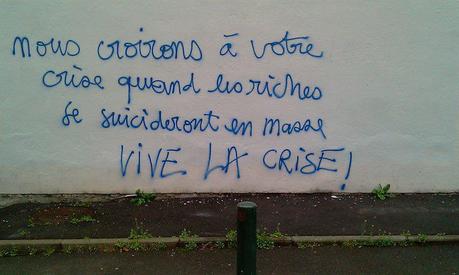 nous croirons à votre
crise quand les riches
se suicideront en masse
VIVE LA CRISE!